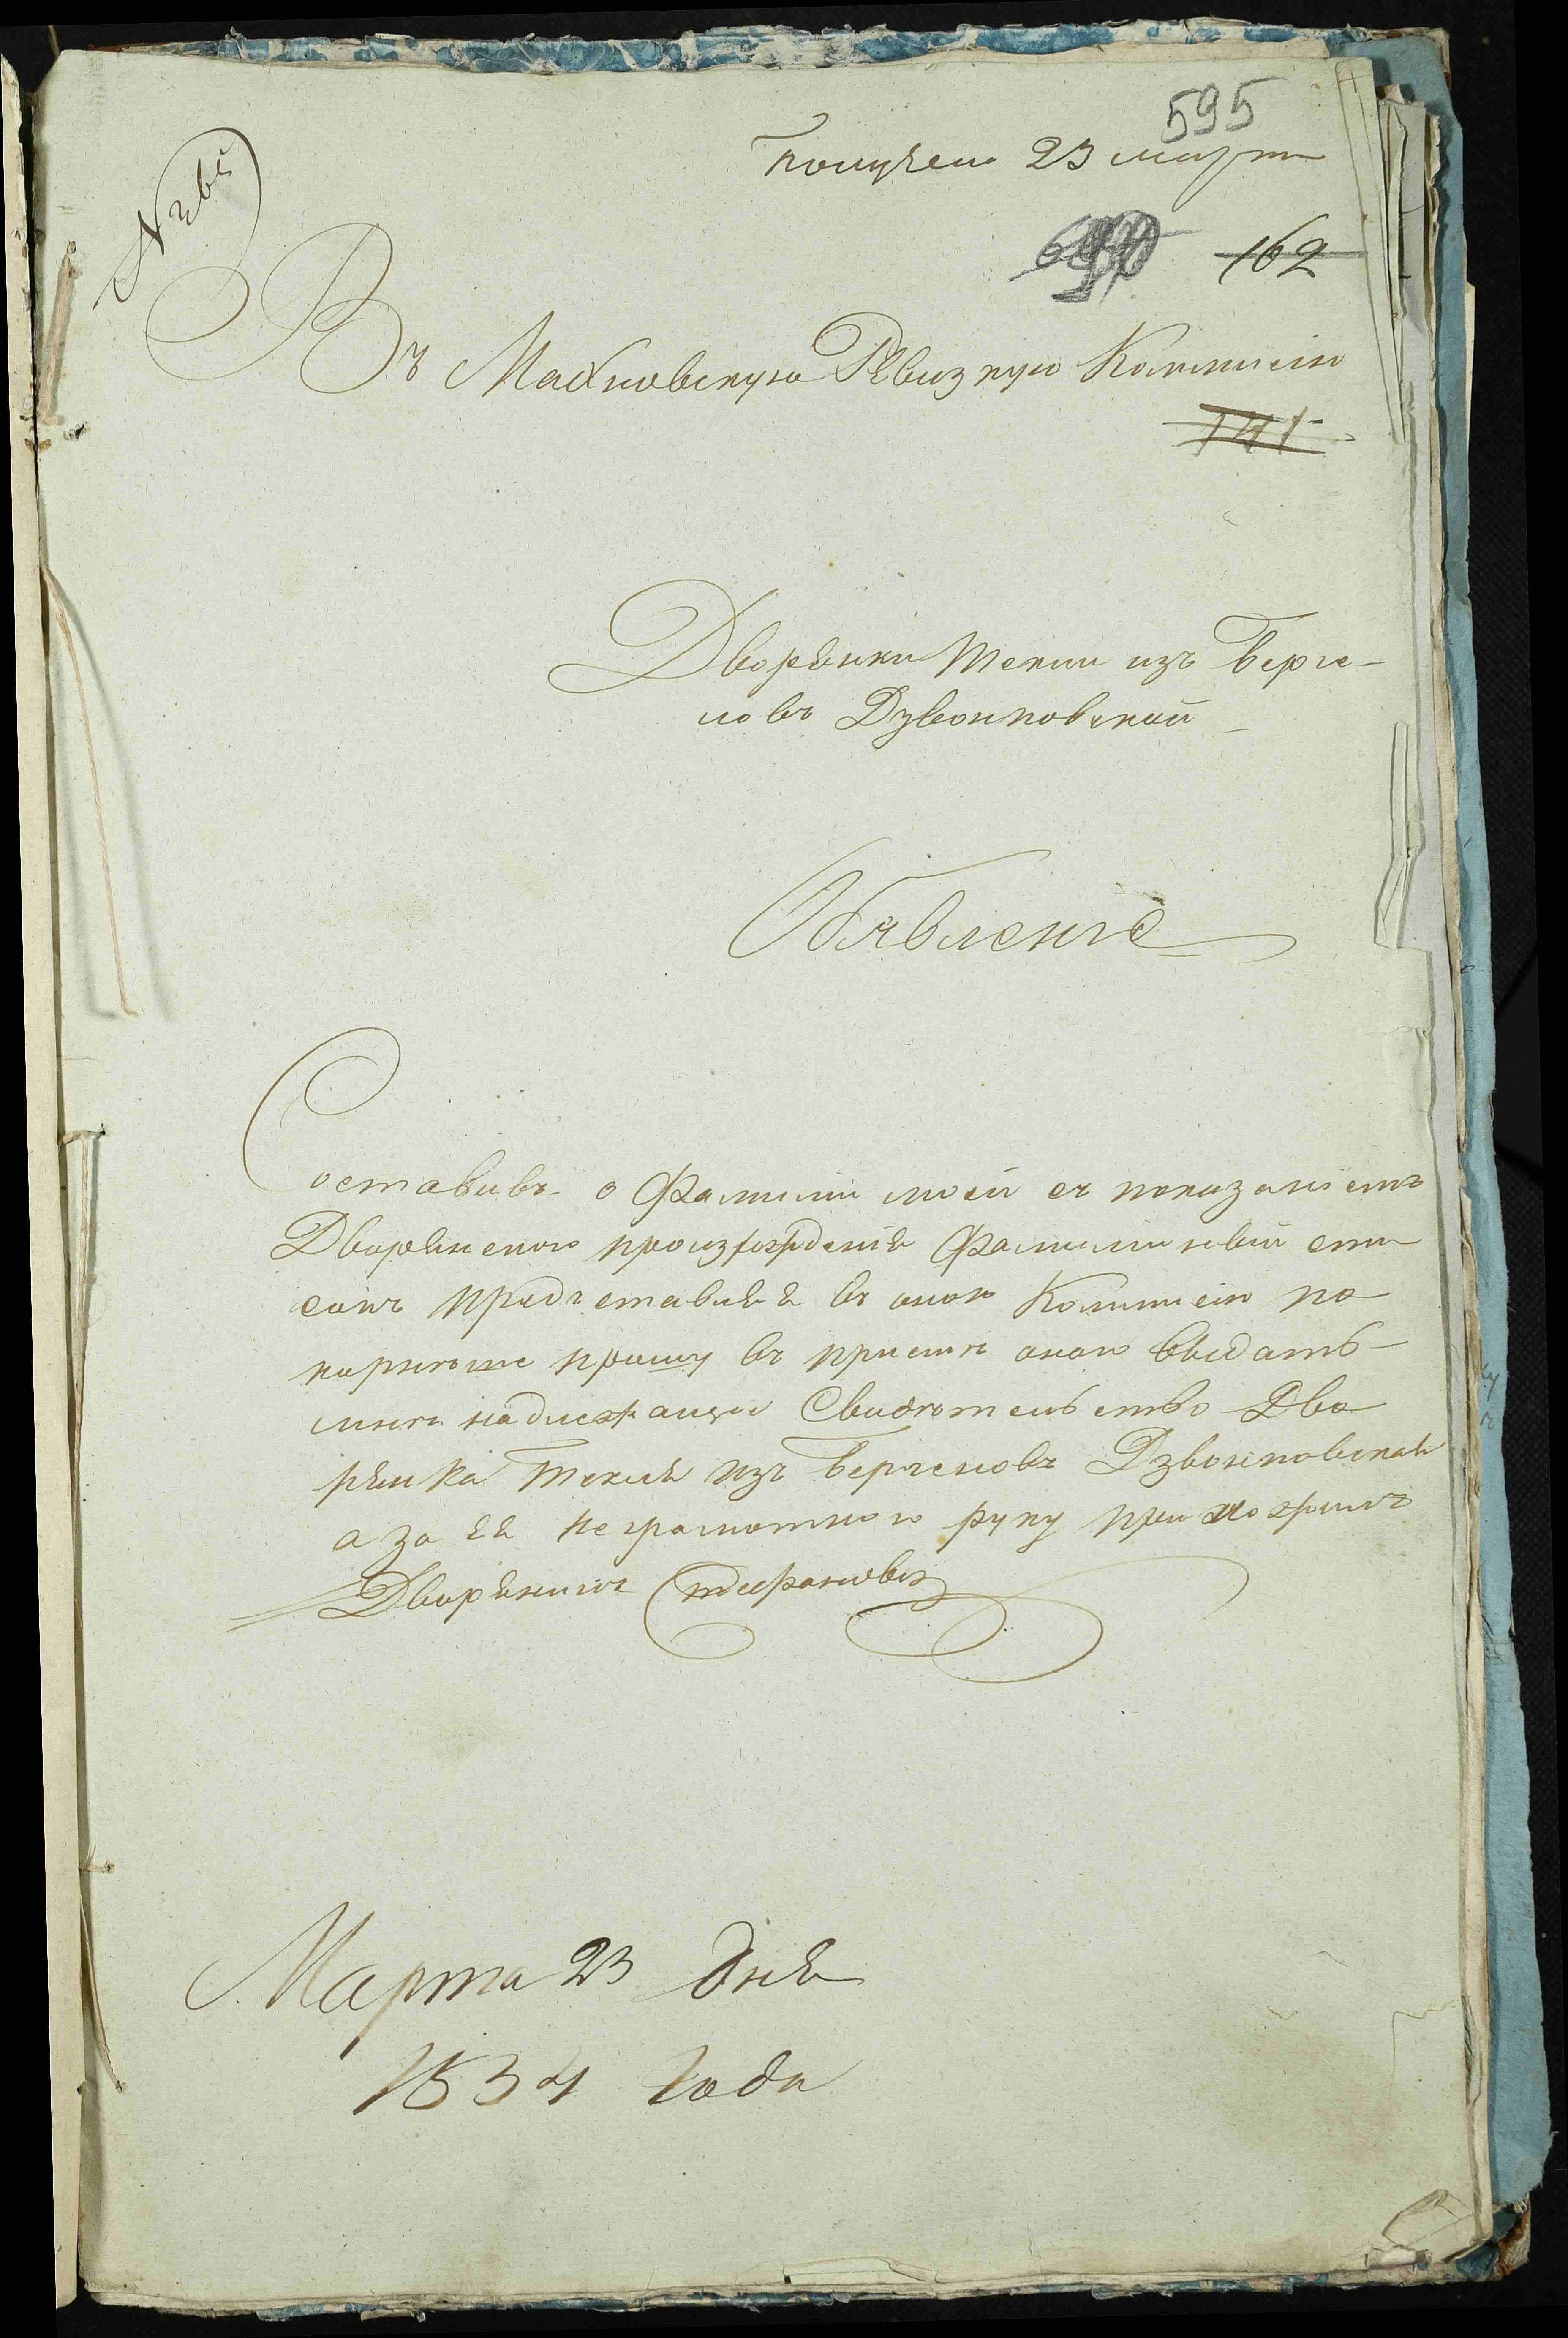 595
Получено 23 марта
162
Въ Махновскую Ревизкую Коммисію
141
Дворянки Теклии изъ Берге-
ловъ Дзвонковской
Обявленіе
Составивъ о Фамилии моей съ показаніемъ
Дворянского произхожденія Фамилиный спи
сокъ представляя въ оною Коммисію по
корнѣше прошу въ приемѣ оного выдать
мнѣ надлежащее Свидѣтельство Дво
рянка Текля изъ Бергеловъ Дзвонковская
а за ея неграмотною руку приложилъ
Дворянинъ
Марта 23 дня
1834 Года